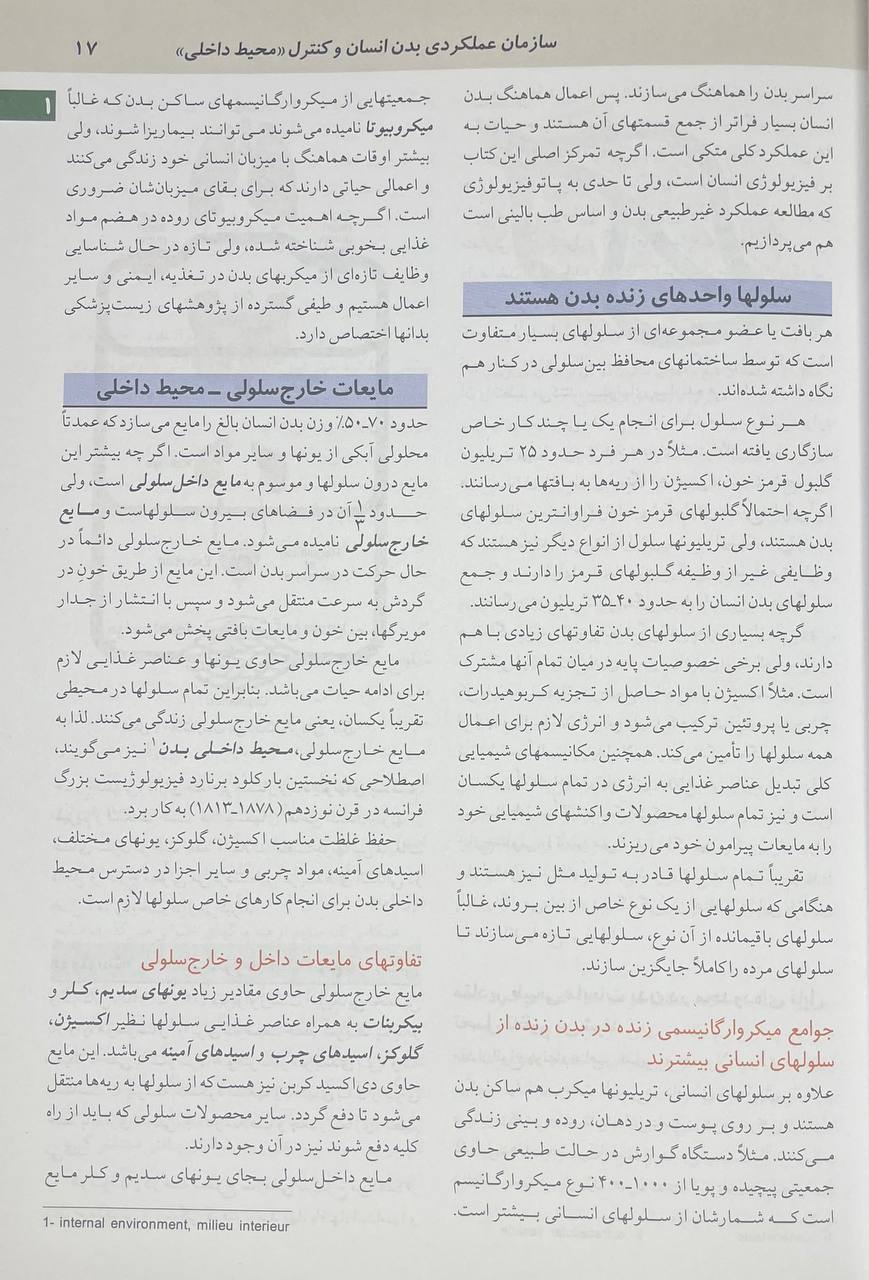 سازمان عملکردی بدن انسان و کنترل «محیط داخلی»
۱۷
۱
سراسر بدن را هماهنگ می‌سازند. پس اعمال هماهنگ بدن
انسان بسیار فراتر از جمع قسمتهای آن هستند و حیات به
این عملکرد کلی متکی است. اگرچه تمرکز اصلی این کتاب
بر فیزیولوژی انسان است، ولی تا حدی به پاتوفیزیولوژی
که مطالعه عملکرد غیرطبیعی بدن و اساس طب بالینی است
هم می‌پردازیم.
سلولها واحدهای زنده بدن هستند
هر بافت یا عضو مجموعه‌ای از سلولهای بسیار متفاوت
است که توسط ساختمانهای محافظ بین‌سلولی در کنار هم
نگاه داشته شده‌اند.
هر نوع سلول برای انجام یک یا چند کار خاص
سازگاری یافته است. مثلاً در هر فرد حدود ۲۵ تریلیون
گلبول قرمز خون، اکسیژن را از ریه‌ها به بافتها می‌رسانند.
اگرچه احتمالاً گلبولهای قرمز خون فراوانترین سلولهای
بدن هستند، ولی تریلیونها سلول از انواع دیگر نیز هستند که
وظایفی غیر از وظیفه گلبولهای قرمز را دارند و جمع
سلولهای بدن انسان را به حدود ۴۰ـ۳۵ تریلیون می‌رسانند.
گرچه بسیاری از سلولهای بدن تفاوتهای زیادی با هم
دارند، ولی برخی خصوصیات پایه در میان تمام آنها مشترک
است. مثلاً اکسیژن با مواد حاصل از تجزیه کربوهیدرات،
چربی یا پروتئین ترکیب می‌شود و انرژی لازم برای اعمال
همه سلولها را تأمین می‌کند. همچنین مکانیسمهای شیمیایی
کلی تبدیل عناصر غذایی به انرژی در تمام سلولها یکسان
است و نیز تمام سلولها محصولات واکنشهای شیمیایی خود
را به مایعات پیرامون خود می‌ریزند.
تقریباً تمام سلولها قادر به تولید مثل نیز هستند و
هنگامی که سلولهایی از یک نوع خاص از بین بروند، غالباً
سلولهای باقیمانده از آن نوع، سلولهایی تازه می‌سازند تا
سلولهای مرده را کاملاً جایگزین سازند.
جوامع میکروارگانیسمی زنده در بدن زنده از
سلولهای انسانی بیشترند
علاوه بر سلولهای انسانی، تریلیونها میکرب هم ساکن بدن
هستند و بر روی پوست و در دهان، روده و بینی زندگی
می‌کنند. مثلاً دستگاه گوارش در حالت طبیعی حاوی
جمعیتی پیچیده و پویا از ۱۰۰۰ـ۴۰۰ نوع میکروارگانیسم
است که شمارشان از سلولهای انسانی بیشتر است.
جمعیتهایی از میکروارگانیسمهای ساکن بدن که غالباً
میکروبیوتا نامیده می‌شوند می‌توانند بیماریزا شوند، ولی
بیشتر اوقات هماهنگ با میزبان انسانی خود زندگی می‌کنند
و اعمالی حیاتی دارند که برای بقای میزبان‌شان ضروری
است. اگرچه اهمیت میکروبیوتای روده در هضم مواد
غذایی بخوبی شناخته شده، ولی تازه در حال شناسایی
وظایف تازه‌ای از میکربهای بدن در تغذیه، ایمنی و سایر
اعمال هستیم و طیفی گسترده از پژوهشهای زیست‌پزشکی
بدانها اختصاص دارد.
مایعات خارج‌سلولی ـ محیط داخلی
حدود ۷۰ـ۵۰٪ وزن بدن انسان بالغ را مایع می‌سازد که عمدتاً
محلولی آبکی از یونها و سایر مواد است. اگر چه بیشتر این
مایع درون سلولها و موسوم به مایع داخل‌سلولی است، ولی
حدود ۱/۳ آن در فضاهای بیرون سلولهاست و مایع
خارج‌سلولی نامیده می‌شود. مایع خارج‌سلولی دائماً در
حال حرکت در سراسر بدن است. این مایع از طریق خونِ در
گردش به سرعت منتقل می‌شود و سپس با انتشار از جدار
مویرگها، بین خون و مایعات بافتی پخش می‌شود.
مایع خارج‌سلولی حاوی یونها و عناصر غذایی لازم
برای ادامه حیات می‌باشد. بنابراین تمام سلولها در محیطی
تقریباً یکسان، یعنی مایع خارج‌سلولی زندگی می‌کنند. لذا به
مایع خارج‌سلولی، محیط داخلی بدن۱ نیز می‌گویند،
اصطلاحی که نخستین بار کلود برنارد فیزیولوژیست بزرگ
فرانسه در قرن نوزدهم (۱۸۷۸ـ۱۸۱۳) به کار برد.
حفظ غلظت مناسب اکسیژن، گلوکز، یونهای مختلف،
اسیدهای آمینه، مواد چربی و سایر اجزا در دسترس محیط
داخلی بدن برای انجام کارهای خاص سلولها لازم است.
تفاوتهای مایعات داخل و خارج‌سلولی
مایع خارج‌سلولی حاوی مقادیر زیاد یونهای سدیم، کلر و
بیکربنات به همراه عناصر غذایی سلولها نظیر اکسیژن،
گلوکز، اسیدهای چرب و اسیدهای آمینه می‌باشد. این مایع
حاوی دی‌اکسید کربن نیز هست که از سلولها به ریه‌ها منتقل
می‌شود تا دفع گردد. سایر محصولات سلولی که باید از راه
کلیه دفع شوند نیز در آن وجود دارند.
مایع داخل‌سلولی بجای یونهای سدیم و کلر مایع
1- internal environment, milieu interieur